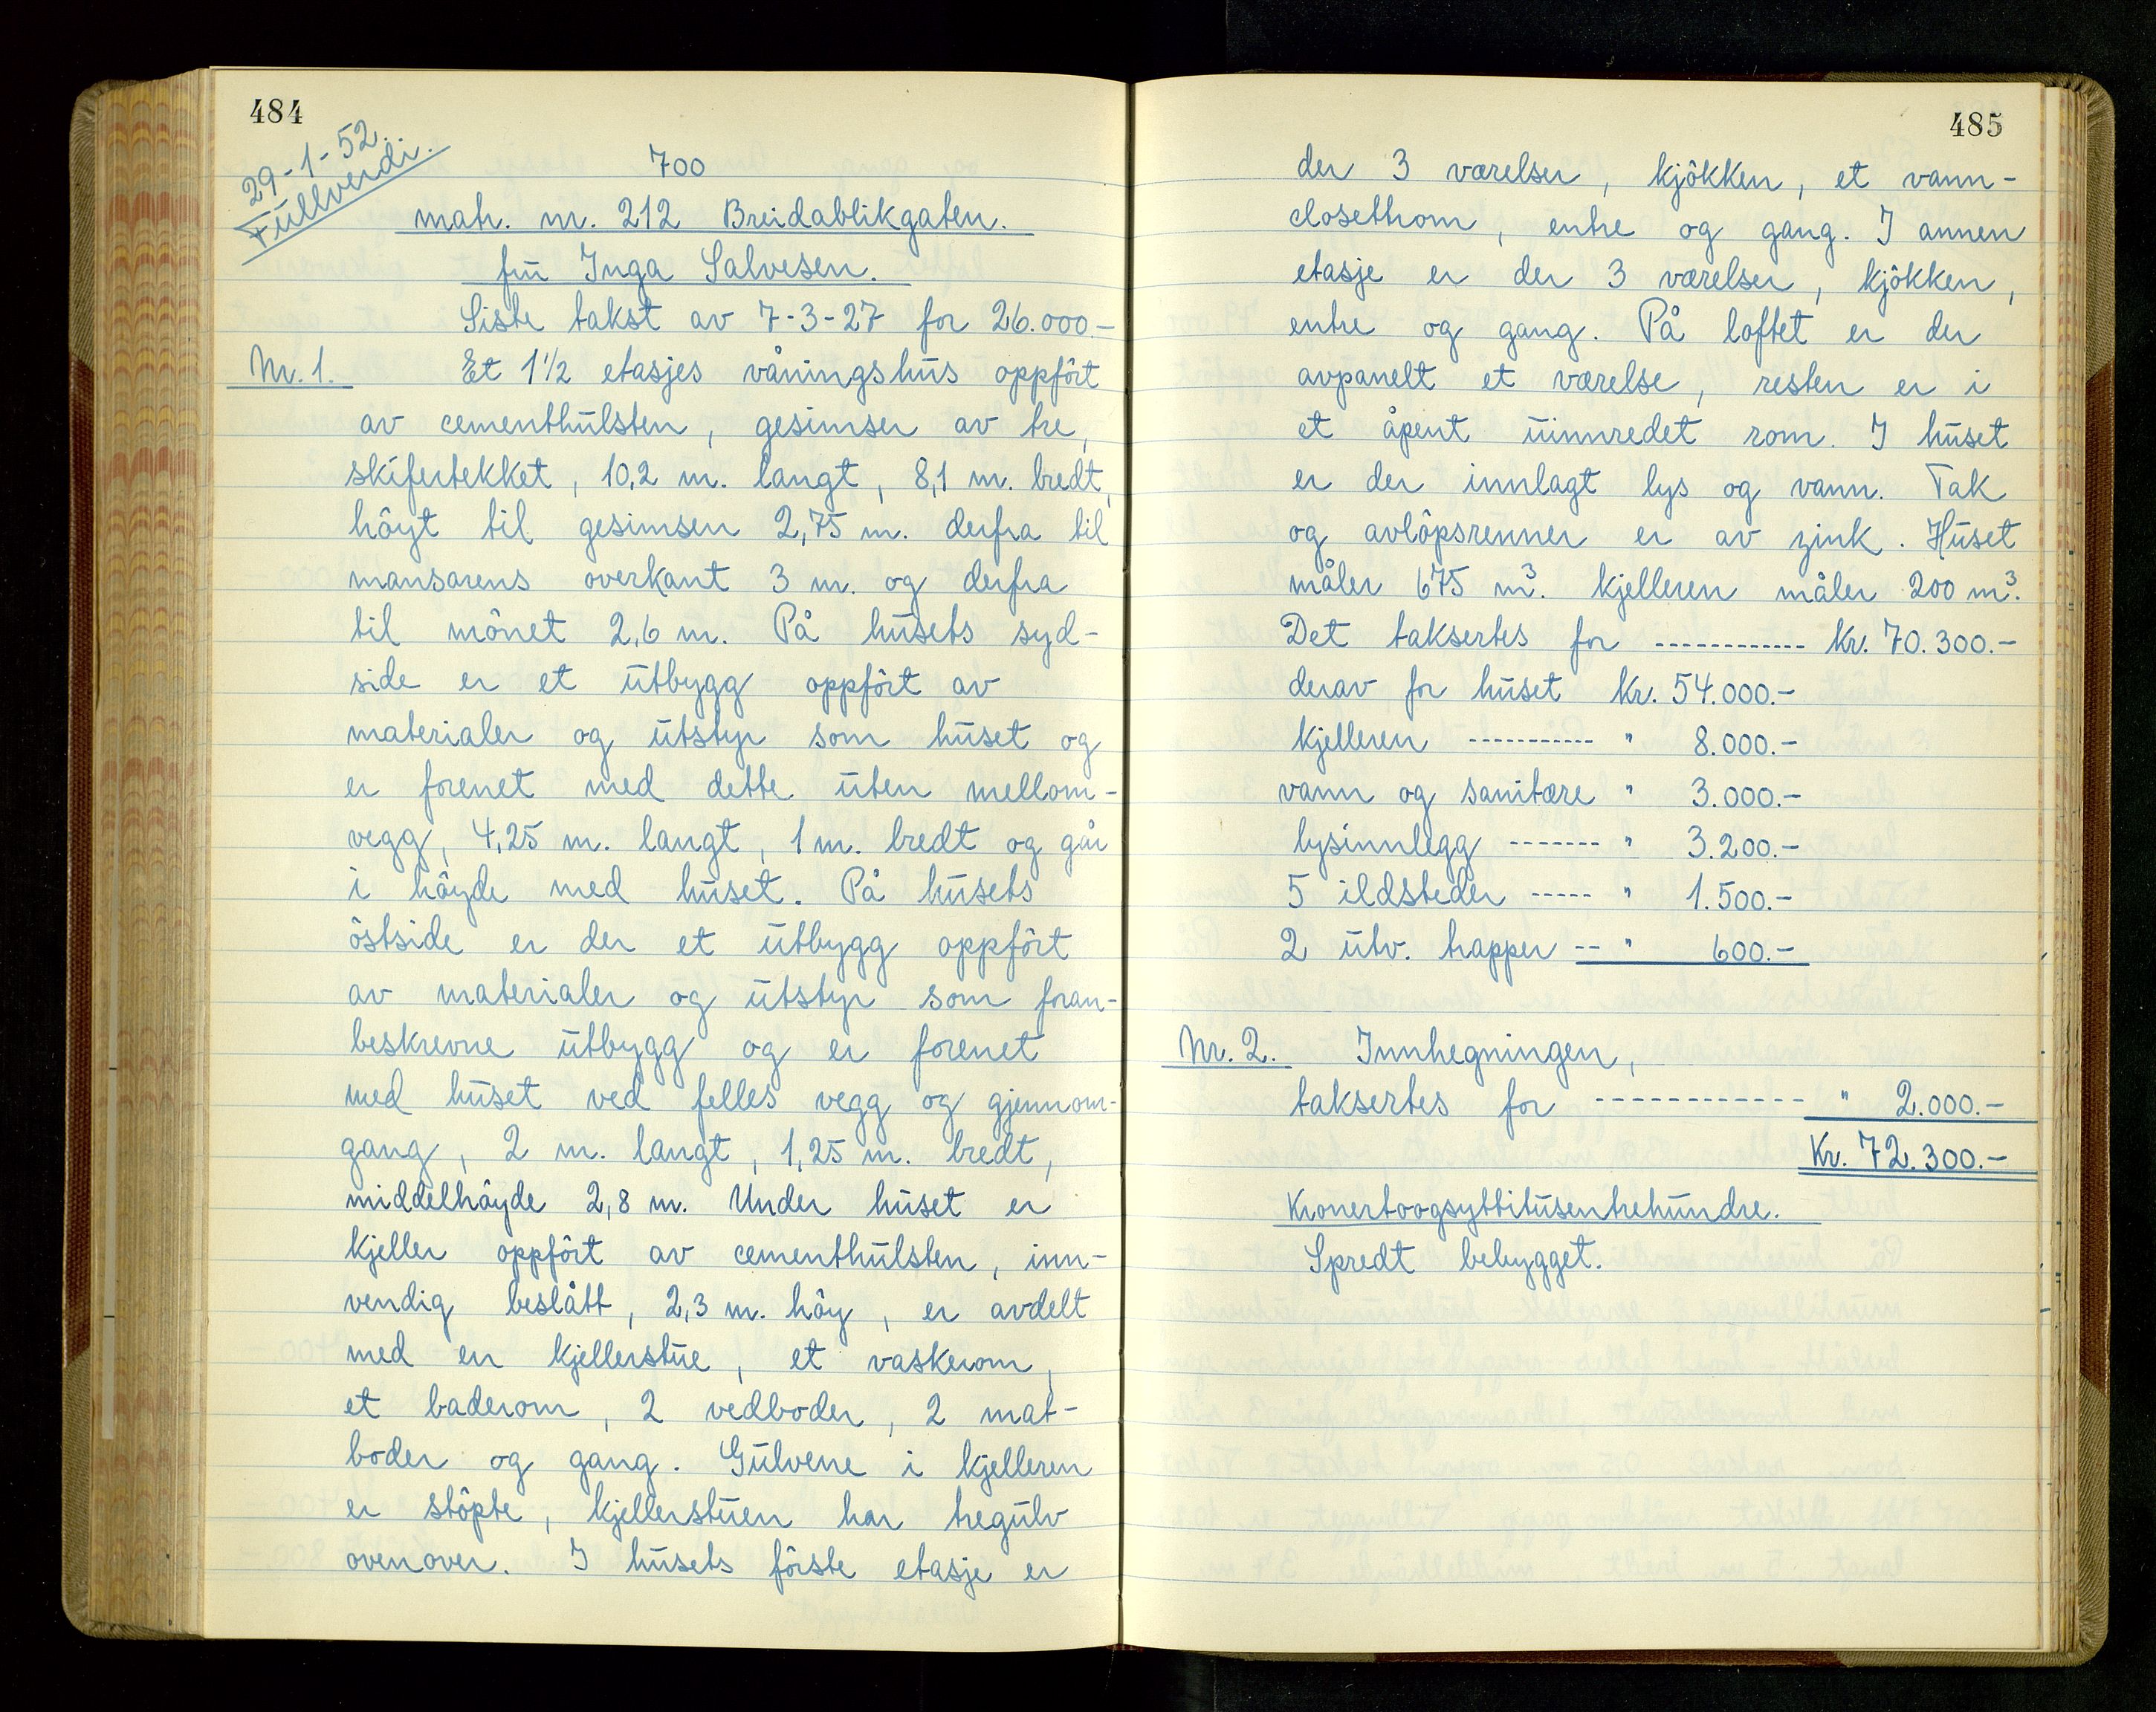 484
29-1-52.
Fullverdi.
700
matr. nr. 212 Breidablikgaten.
fru Inga Salvesen.
Siste takst av 7-3-27 for 26.000.-
Nr. 1. Et 1½ etasjes våningshus oppført
av cementhulsten, gesimser av tre,
skifertekket, 10,2 m. langt, 8,1 m. bredt,
høyt til gesimsen 2,75 m. derfra til
mansarens overkant 3 m. og derfra
til mønet 2,6 m. På husets syd-
side er et utbygg oppført av
materialer og utstyr som huset og
er forenet med dette uten mellom-
vegg, 4,25 m. langt, 1 m. bredt og går
i høyde med huset. På husets
østside er der et utbygg oppført
av materialer og utstyr som foran-
beskrevne utbygg og er forenet
med huset ved felles vegg og gjennom-
gang, 2 m. langt, 1,25 m. bredt,
middelhøyde 2,8 m. Under huset er
kjeller oppført av cementhulsten, inn-
vendig beslått, 2,3 m. høy, er avdelt
med en kjellerstue, et vaskerom,
et baderom, 2 vedboder, 2 mat-
boder og gang. Gulvene i kjelleren
er støpte, kjellerstuen har tregulv
ovenover. I husets første etasje er
485
der 3 værelser, kjøkken, et vann-
closettrom, entre og gang. I annen
etasje er der 3 værelser, kjøkken,
entre og gang. På loftet er der
avpanelt et værelse, resten er i
et åpent uinnredet rom. I huset
er der innlagt lys og vann. Tak
og avløpsrenner er av zink. Huset
måler 675 m³. kjelleren måler 200 m³.
Det taksertes for ------------ kr. 70.300.-
derav for huset kr. 54.000.-
kjelleren ----------- " 8.000.-
vann og sanitære " 3.000.-
lysinnlegg ------- " 3.200.-
5 ildsteder ----- " 1.500.-
2 utv. trapper -- " 600.-
Nr. 2. Innhegningen,
taksertes for ------------ " 2.000.-
Kr. 72.300.-
Kronertoogsyttitusentrehundre.
Spredt bebygget.